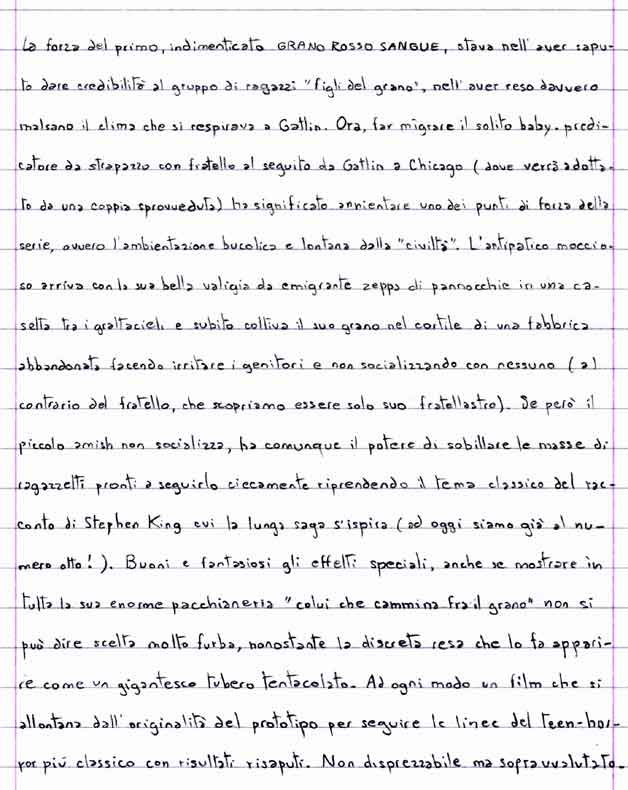 La forza del primo, indimenticato GRANO ROSSO SANGUE, stava nell'aver sapu-
to dare credibilità al gruppo di ragazzi "figli del grano", nell'aver reso davvero
malsano il clima che si respirava a Gatlin. Ora, far migrare il solito baby-predi-
catore da strapazzo con fratello al seguito da Gatlin a Chicago (dove verrà adotta-
to da una coppia sprovveduta) ha significato annientare uno dei punti di forza della
serie, ovvero l'ambientazione bucolica e lontana dalla "civiltà". L'antipatico moccio-
so arriva con la sua bella valigia da emigrante zeppa di pannocchie in una ca-
setta tra i grattacieli e subito coltiva il suo grano nel cortile di una fabbrica
abbandonata facendo irritare i genitori e non socializzando con nessuno (al
contrario del fratello, che scopriamo essere solo suo fratellastro). Se però il
piccolo amish non socializza, ha comunque il potere di sobillare le masse di
ragazzetti pronti a seguirlo ciecamente riprendendo il tema classico del rac-
conto di Stephen King cui la lunga saga s'ispira (ad oggi siamo già al nu-
mero otto!). Buoni e fantasiosi gli effetti speciali, anche se mostrare in
tutta la sua enorme pacchianeria "colui che cammina fra il grano" non si
può dire scelta molto furba, nonostante la discreta resa che lo fa appari-
re come un gigantesco tubero tentacolato. Ad ogni modo un film che si
allontana dall'originalità del prototipo per seguire le linee del teen-hor-
ror più classico con risultati risaputi. Non disprezzabile ma sopravvalutato.